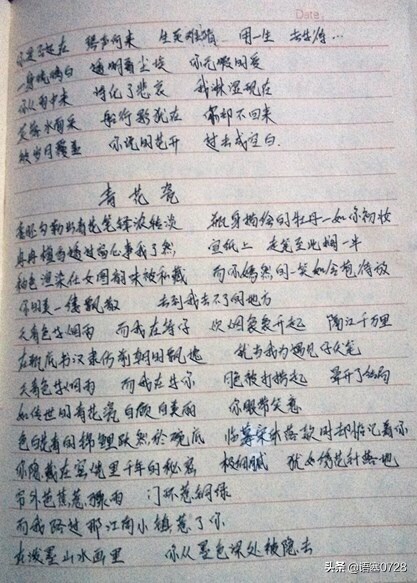 Date:
你是否还在 琴声何来 生死难猜 用一生 去等待…
一身琉璃白 透明着尘埃 你无瑕的爱
你从雨中来 诗化了悲哀 我淋湿现在
芙蓉水面采 船行影犹在 你却不回来
被岁月覆盖 你说的花开 过去成空白.
青花瓷
素胚勾勒出青花笔锋浓转淡 瓶身描绘的牡丹一如你初妆
冉冉檀香透过窗心事我了然 宣纸上 走笔至此搁一半
釉色渲染仕女图韵味被私藏 而你嫣然的一笑如含苞待放
你的美一缕飘散 去到我去不了的地方
天青色等烟雨 而我在等你 炊烟袅袅升起 隔江千万里
在瓶底书汉隶仿前朝的飘逸 就当我为遇见你伏笔
天青色等烟雨 而我在等你 月色被打捞起 晕开了结局
如传世的青花瓷自顾自美丽 你眼带笑意
色白花青的锦鲤跃然於碗底 临摹宋体落款时却惦记着你
你隐藏在窑烧里千年的秘密 极细腻 犹如绣花针落地
帘外芭蕉惹骤雨 门环惹铜绿
而我路过那江南小镇惹了你
在泼墨山水画里 你从墨色深处被隐去
头条 @